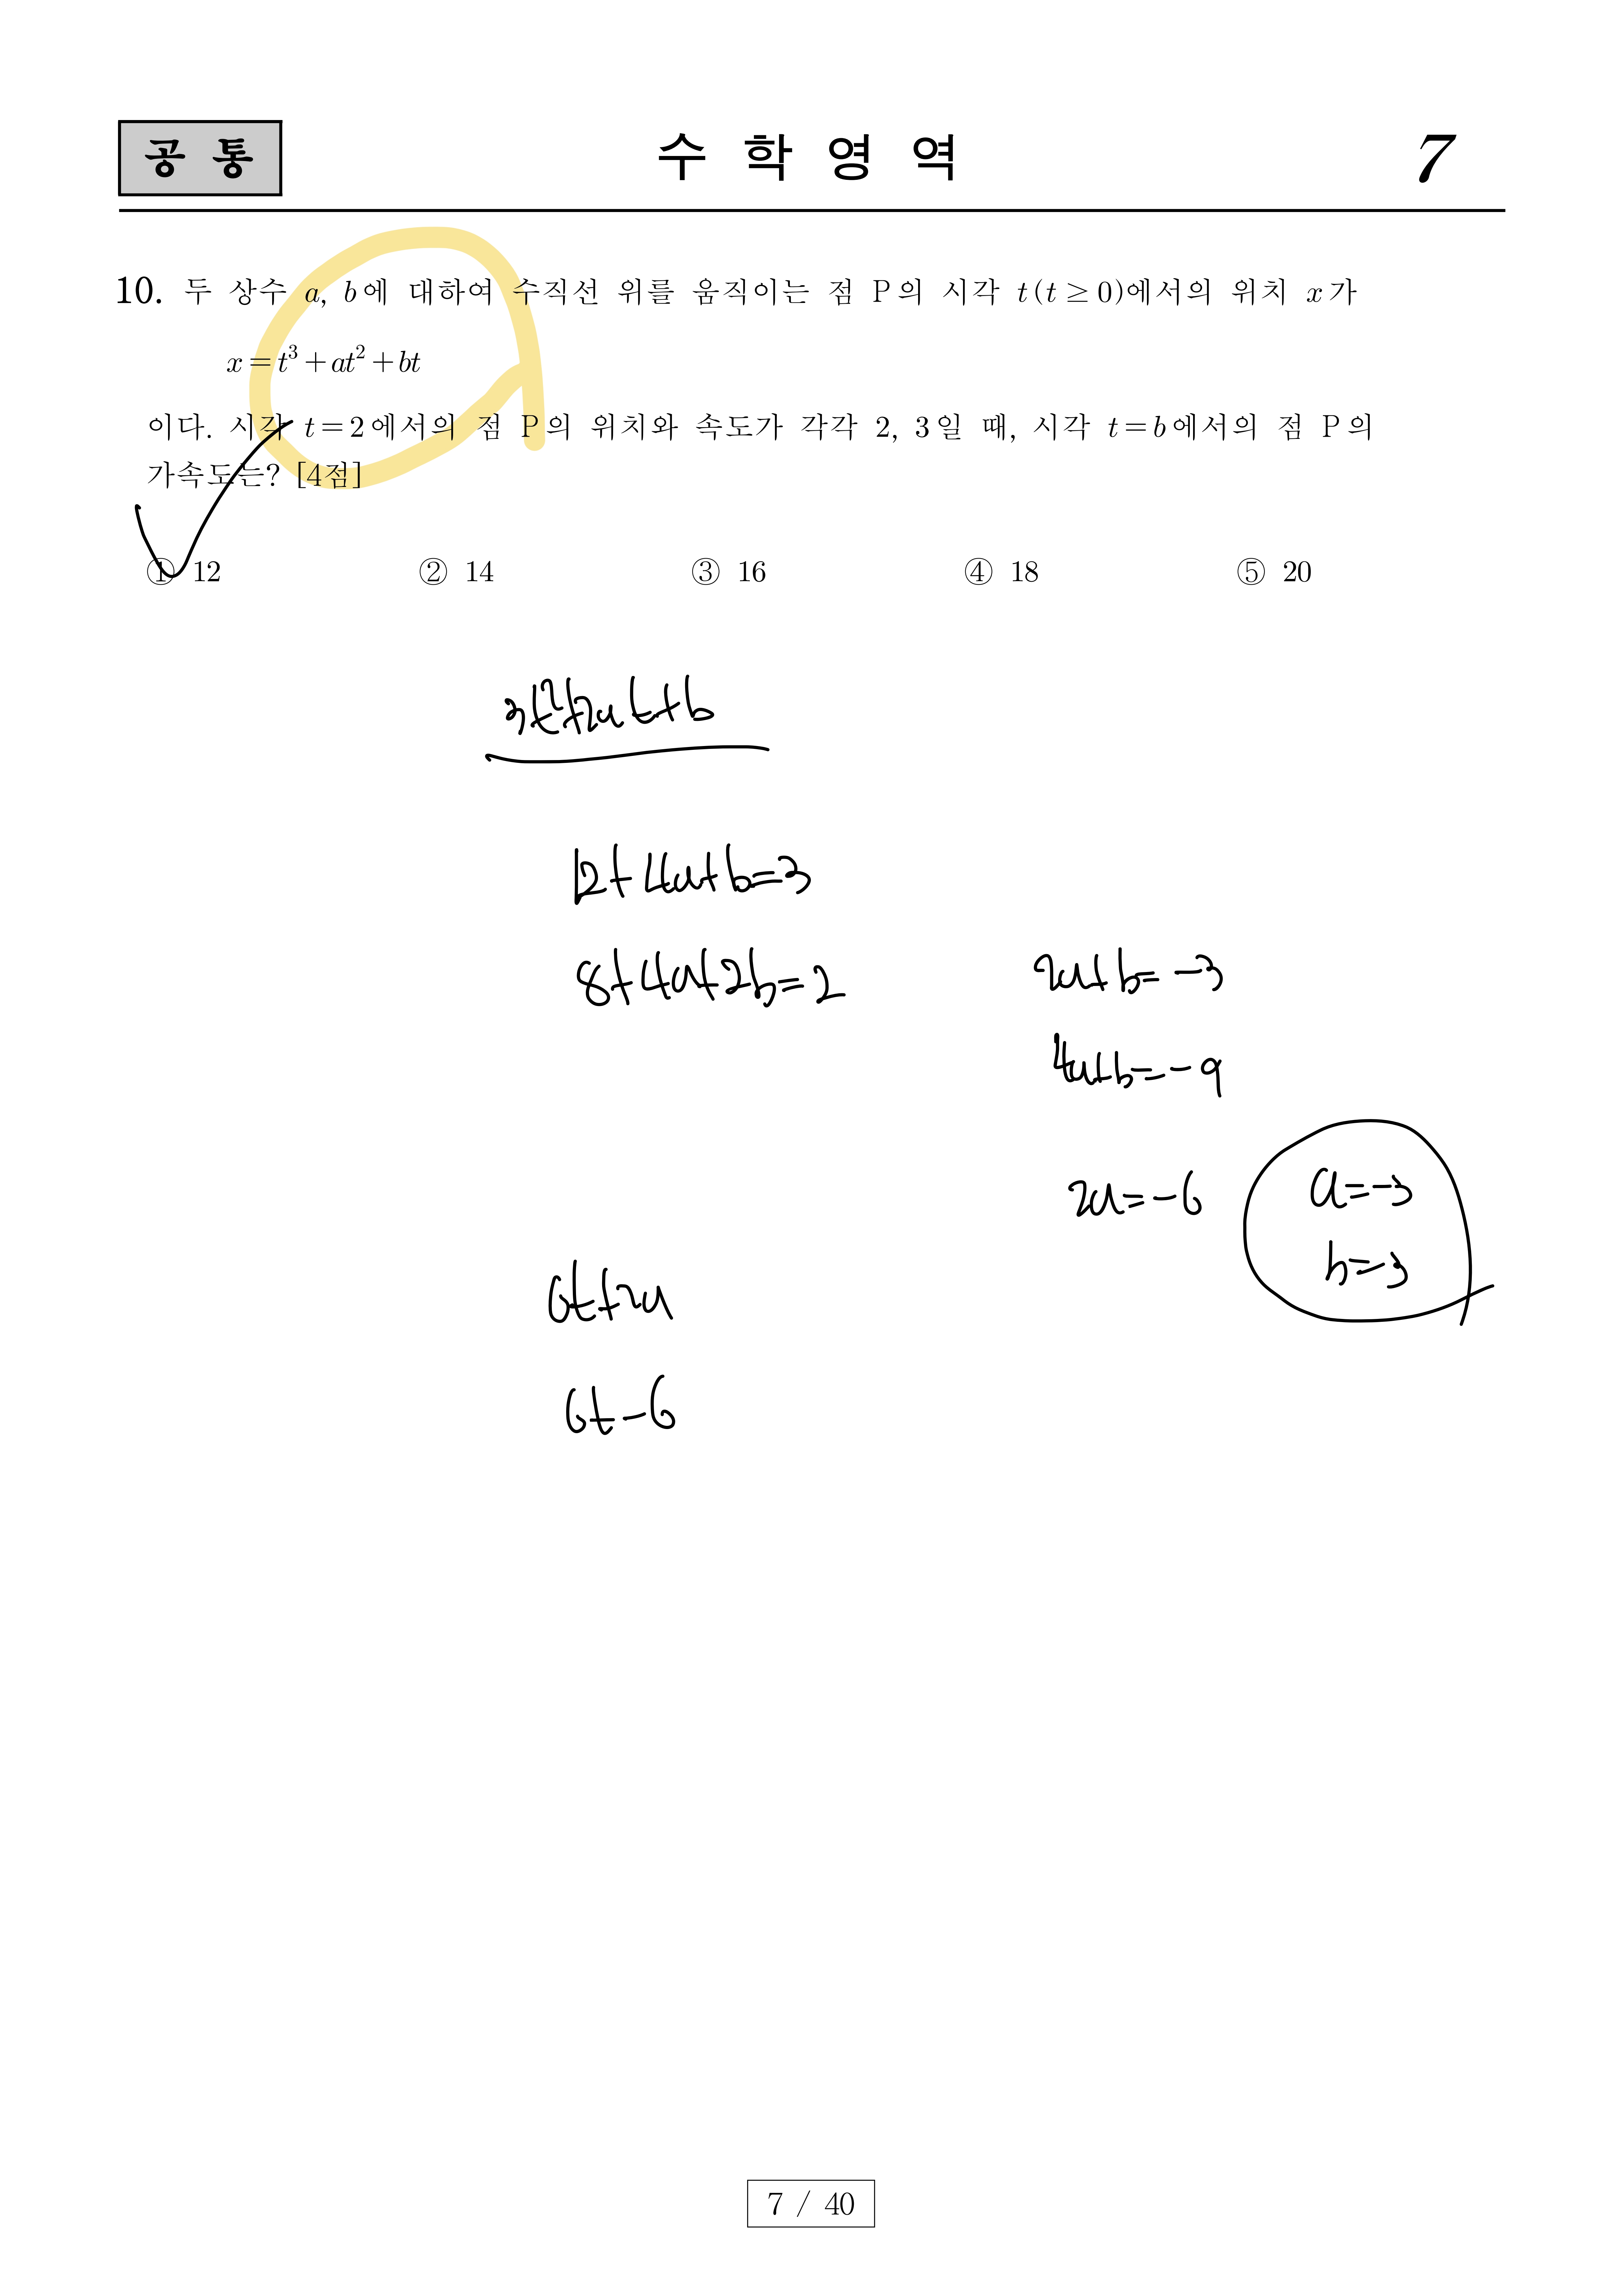 공 통
수 학 영 역
7
10. 두 상수 a, b에 대하여 수직선 위를 움직이는 점 P의 시각 t(t ≥ 0)에서의 위치 x가
x = t³ + at² + bt
이다. 시각 t = 2에서의 점 P의 위치와 속도가 각각 2, 3일 때, 시각 t = b에서의 점 P의
가속도는? [4점]
① 12 ② 14 ③ 16 ④ 18 ⑤ 20
3t²+2at+b
12+4a+b=3
8+4a+2b=2
2a+b=-3
4a+b=-9
2a=-6
a=-3
b=3
6t+2a
6t-6
7 / 40